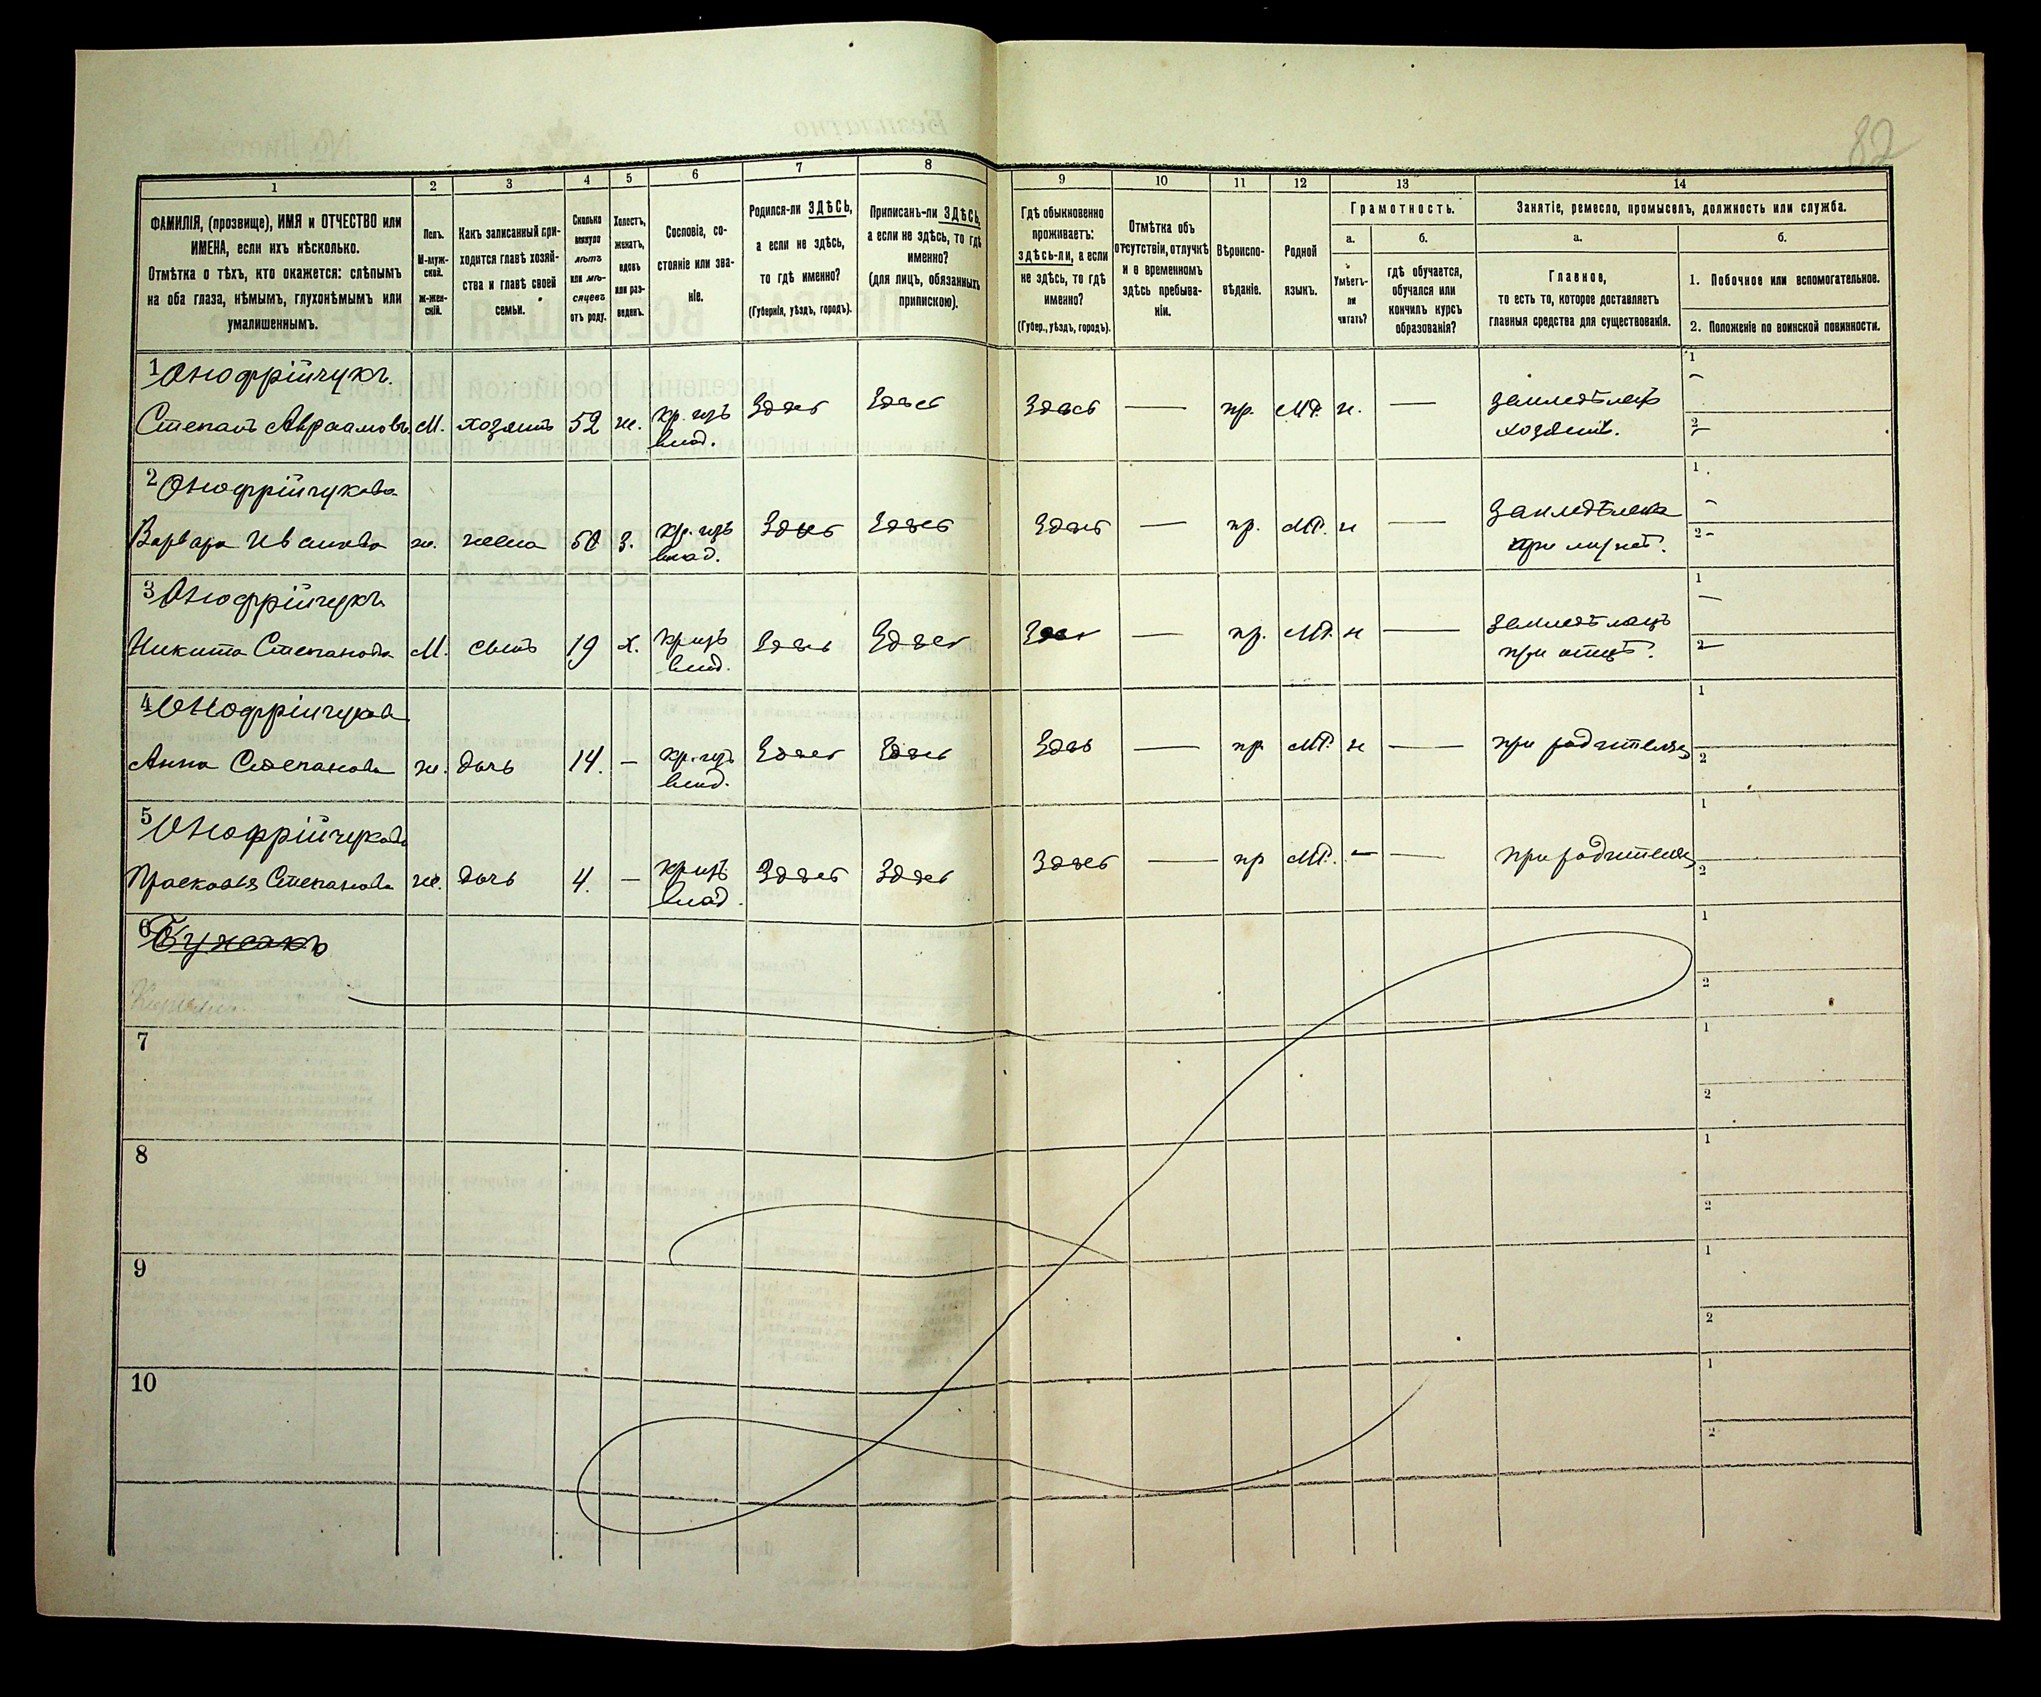 82
1 2 3 4 5 6 7 8 9 10 11 12 13 14
ФАМИЛІЯ, (прозвище), ИМЯ и ОТЧЕСТВО или
ИМЕНА, если ихъ нѣсколько.
Отмѣтка о тѣхъ, кто окажется: слѣпымъ
на оба глаза, нѣмымъ, глухонѣмымъ или
умалишеннымъ.
Полъ.
М-муж-
ской.
ж-жен-
скій.
Какъ записанный при-
ходится главѣ хозяй-
ства и главѣ своей
семьи.
Сколько
минуло
лѣтъ
или мѣ-
сяцевъ
отъ роду.
Холостъ,
женатъ,
вдовъ
или раз-
веденъ.
Сословіе, со-
стояніе или зва-
ніе.
Родился-ли ЗДѢСЬ,
а если не здѣсь,
то гдѣ именно?
(Губернія, уѣздъ, городъ).
Приписанъ-ли ЗДѢСЬ,
а если не здѣсь, то гдѣ
именно?
(для лицъ, обязанныхъ
припискою).
Гдѣ обыкновенно
проживаетъ:
здѣсь-ли, а если
не здѣсь, то гдѣ
именно?
(Губер., уѣздъ, городъ).
Отмѣтка объ
отсутствіи, отлучкѣ
и о временномъ
здѣсь пребыва-
ніи.
Вѣроиспо-
вѣданіе.
Родной
языкъ.
Грамотность.
а.
Умѣетъ-
ли
читать?
б.
гдѣ обучается,
обучался или
кончилъ курсъ
образованія?
Занятіе, ремесло, промыселъ, должность или служба.
а.
Главное,
то есть то, которое доставляетъ
главныя средства для существованія.
б.
1. Побочное или вспомогательное.
2. Положеніе по воинской повинности.
1 Онофрійчукъ
Степанъ Авраамовъ М. хозяинъ 52 ж. кр. изъ влад. Здѣсь Здѣсь Здѣсь — пр. МР. н. — земледѣлецъ хозяинъ. 1 – 2 –
2 Онофрійчукова
Варвара Иванова ж. жена 50 з. кр. изъ влад. Здѣсь Здѣсь Здѣсь — пр. МР. н — земледѣлка при мужѣ. 1 – 2 –
3 Онофрійчукъ
Никита Степановъ М. сынъ 19 х. кр изъ влад. Здѣсь Здѣсь Здѣсь — пр. МР. н — земледѣлецъ при отцѣ. 1 — 2 —
4 Онофрійчукова
Анна Степанова ж. дочь 14. – кр. изъ влад. Здѣсь Здѣсь Здѣсь — пр МР. н — при родителяхъ 1 2
5 Онофрійчукова
Прасковья Степанова ж. дочь 4. – кр изъ влад. Здѣсь Здѣсь Здѣсь — пр МР. – — при родителяхъ 1 2
6 1 2
7 1 2
8 1 2
9 1 2
10 1 2